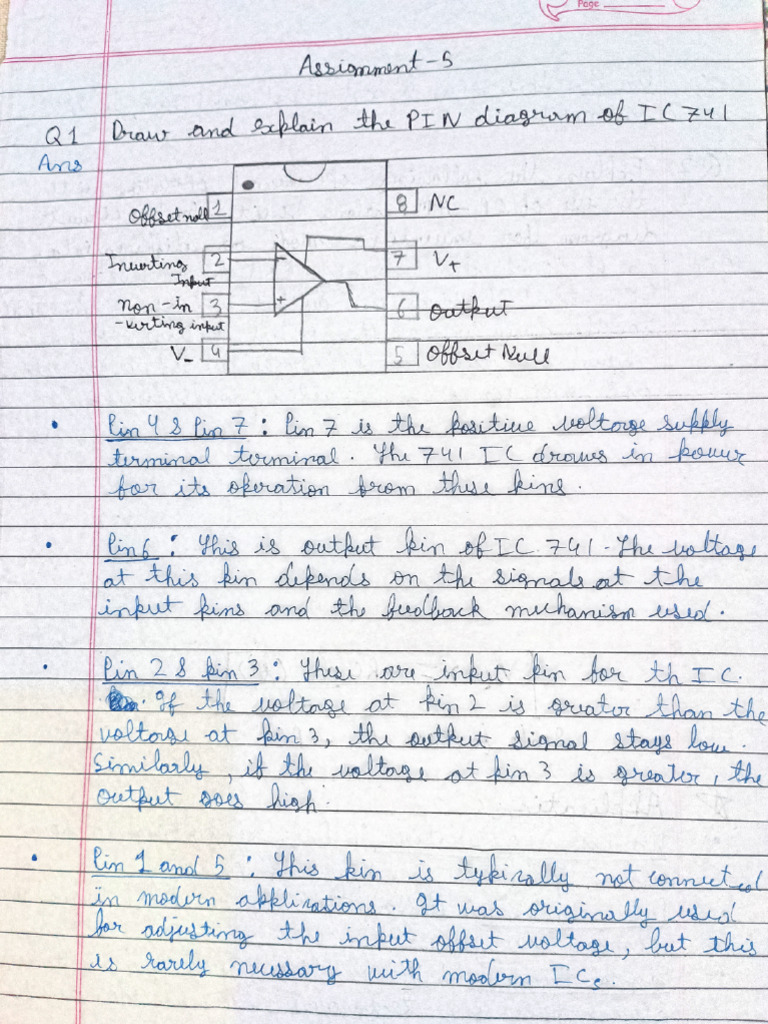 Page
Assignment-5
Q1 Draw and explain the PIN diagram of IC 741
Ans
Offset null 1
8 NC
Inverting 2
Input
7 V+
non-in 3
-verting input
6 output
V- 4
5 offset Null
• Pin 4 & Pin 7 : Pin 7 is the positive voltage supply
terminal terminal. The 741 IC draws in power
for its operation from these pins.
• Pin 6 : This is output pin of IC 741. The voltage
at this pin depends on the signals at the
input pins and the feedback mechanism used.
• Pin 2 & pin 3 : These are input pin for th IC.
. If the voltage at pin 2 is greater than the
voltage at pin 3, the output signal stays low.
Similarly, if the voltage at pin 3 is greater, the
output goes high.
• Pin 1 and 5 : This pin is typically not connected
in modern applications. It was originally used
for adjusting the input offset voltage, but this
is rarely necessary with modern ICs.